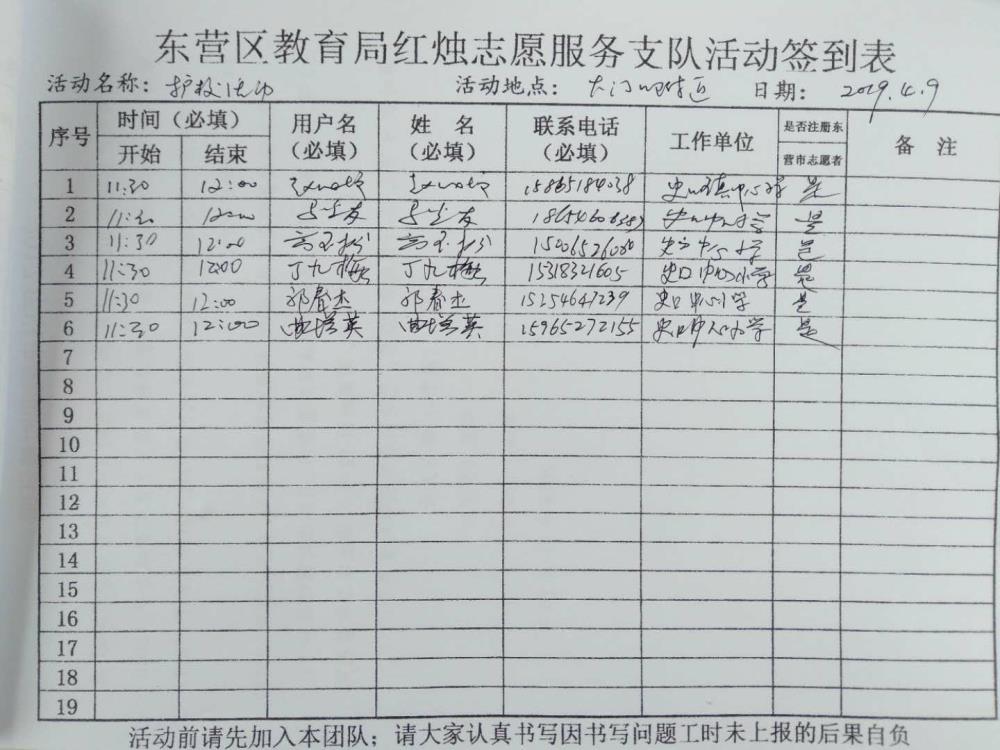 东营区教育局红烛志愿服务支队活动签到表
活动名称：护校活动 活动地点： 大门口 日期： 2019.4.9
序号 时间（必填） 用户名（必填） 姓 名（必填） 联系电话（必填） 工作单位 是否注册东营市志愿者 备 注
开始 结束
1 11:30 12:00 15865184038 是
2 11:30 12:00 是
3 11:30 12:00 15006526080 是
4 11:30 12:00 丁九梅 丁九梅 15318321605 史口中心小学 是
5 11:30 12:00 郭春杰 郭春杰 15254647239 史口中心小学 是
6 11:30 12:00 曲增英 曲增英 15965272155 史口中心小学 是
7
8
9
10
11
12
13
14
15
16
17
18
19
活动前请先加入本团队；请大家认真书写因书写问题工时未上报的后果自负